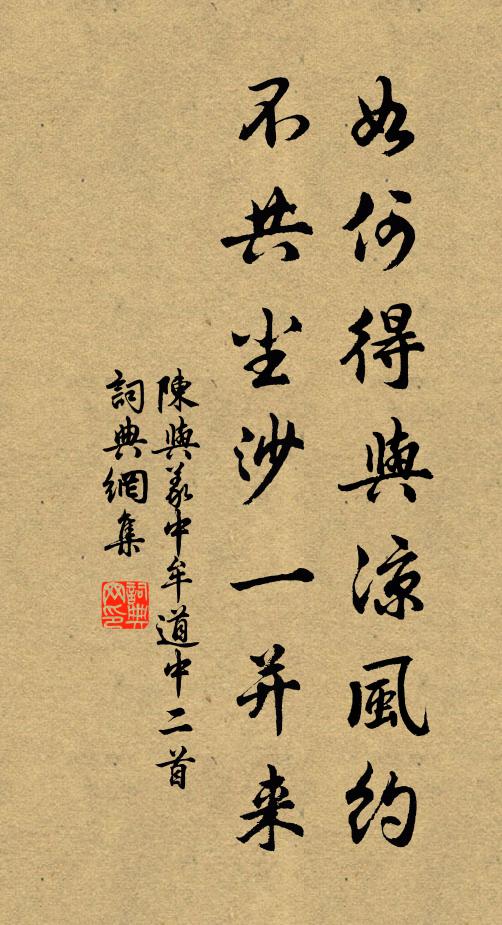 如何得與涼風約
不共尘沙一并来
陳與義中牟道中二首
詞典網集
詞典網印